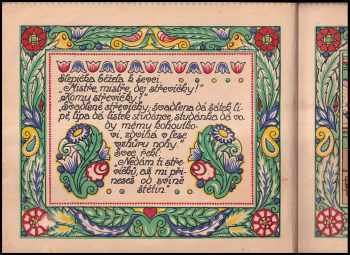 Slepička běžela k ševci.
"Mistře, mistře, dej střevíčky!"
"Komu střevíčky?"
"Švadleně střevíčky, švadlena dá šátek li-
pě, lípa dá lístek studánce, studánka dá vo-
dy mému kohoutko-
vi, zdvihá v lese
vzhůru nohy."
Švec řekl:
"Nedám ti stře-
víčků, až mi při-
neseš od svině
štětin."